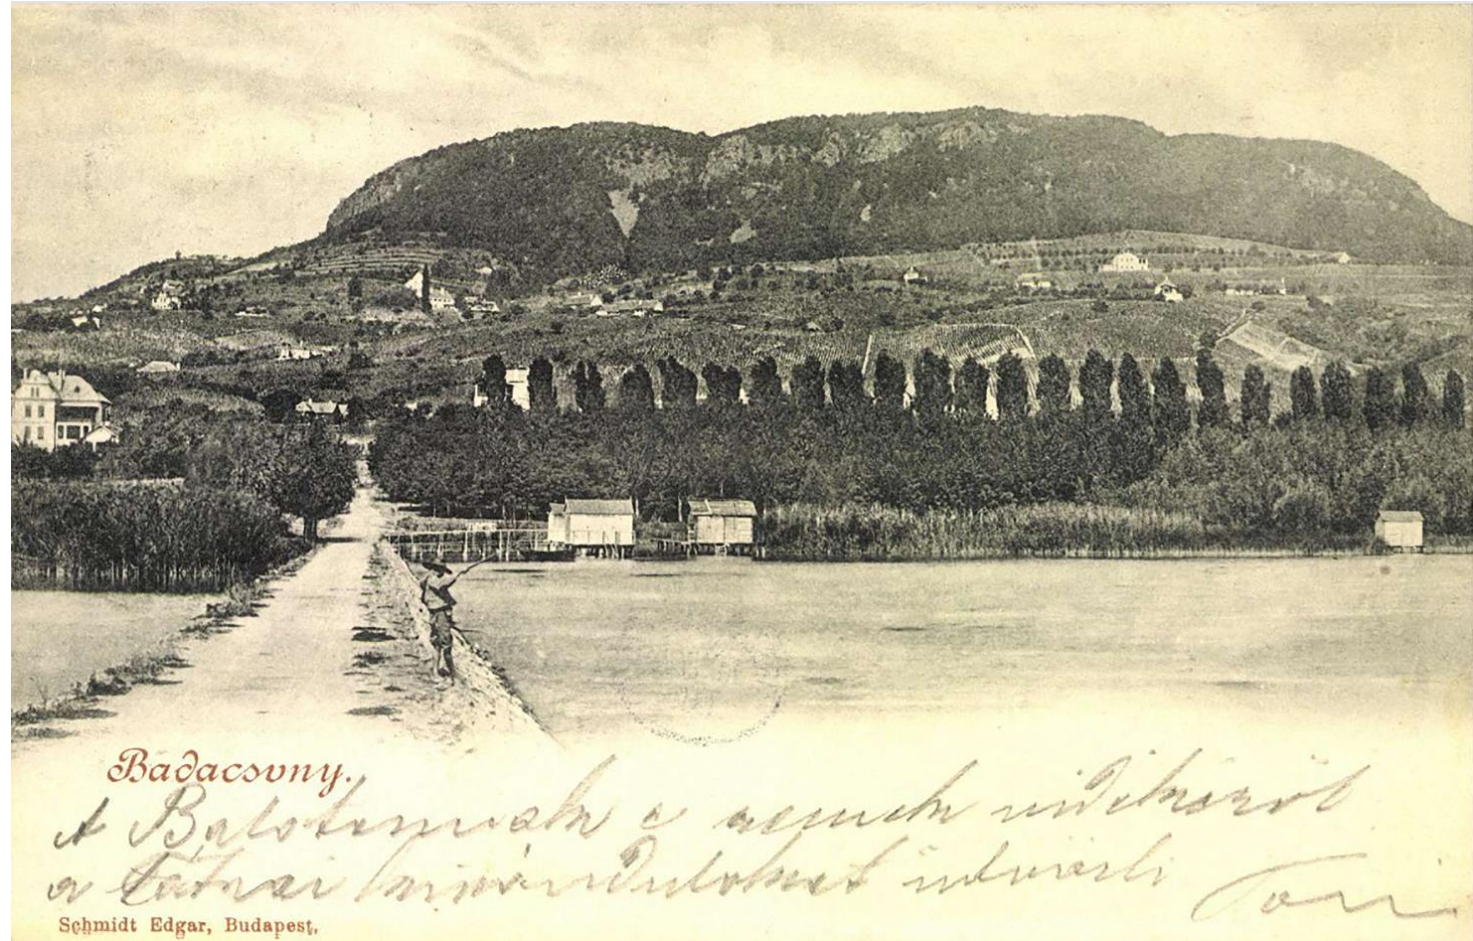 Badacsony.
A Balatonnak e remek vidékéről
a tátrai kirándulókat üdvözli
Schmidt Edgar, Budapest.